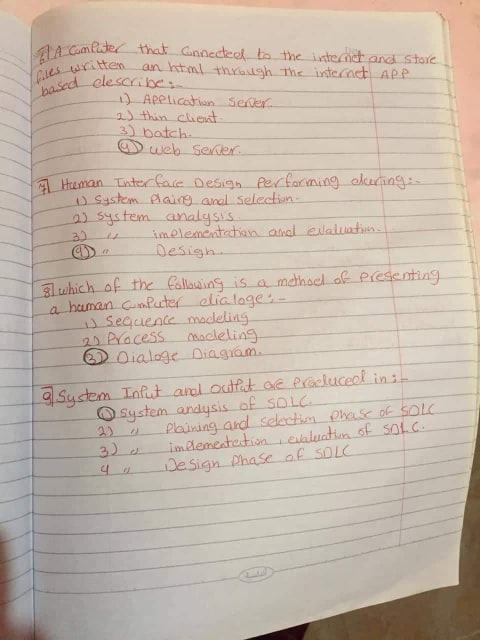 6] A Computer that Connected to the internet and store
files written an html through the internet APP
based describe:-
1) Application server.
2) thin client.
3) batch.
4) web server.
7] Human Interface Design Performing during:-
1) System Plaing and selection.
2) System analysis.
3) " implementation and evaluation.
4) " Design.
8] which of the following is a method of Presenting
a human Computer dialoge:-
1) Sequence modeling
2) Process modeling
3) Dialoge Diagram.
9] System Input and output are Produced in:-
1) System analysis of SDLC.
2) " Plaining and selection Phase of SDLC
3) " implementection, evaluation of SDLC.
4 " Design Phase of SDLC